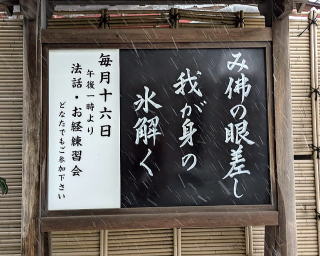 み佛の眼差し
我が身の
氷解く
毎月十六日
午後一時より
法話・お経練習会
どなたでもご参加下さい